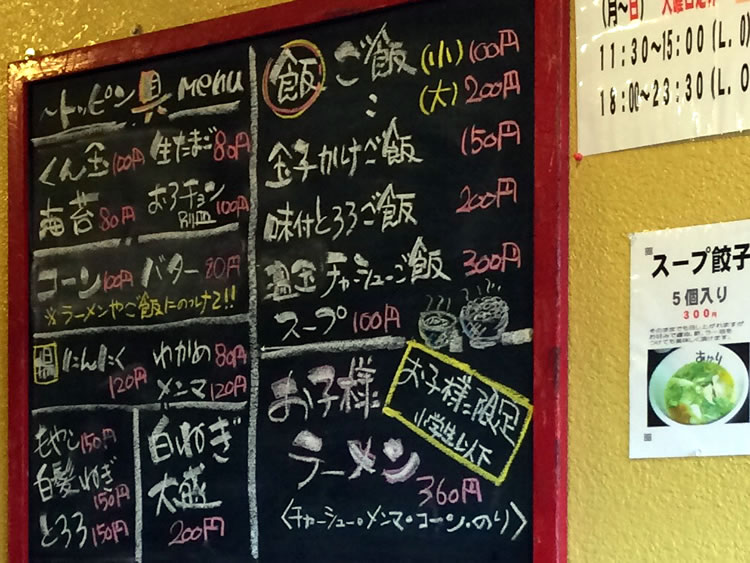 〜トッピン具 menu
くん玉100円 生たまご80円
海苔80円 おろチョン別皿100円
コーン100円 バター80円
※ラーメンやご飯にのっけて!!
にんにく120円
わかめ80円
メンマ120円
もやし150円
白髪ねぎ150円
とろろ150円
白ねぎ
大盛
200円
飯 ご飯(小)100円
(大)200円
玉子かけご飯 150円
味付とろろご飯 200円
温玉チャーシューご飯 300円
スープ 100円
お子様
ラーメン
360円
お子様限定
小学生以下
〈チャーシュー・メンマ・コーン・のり〉
11:30〜15:00(L.O
18:00〜23:30(L.O
スープ餃子
5個入り
300円